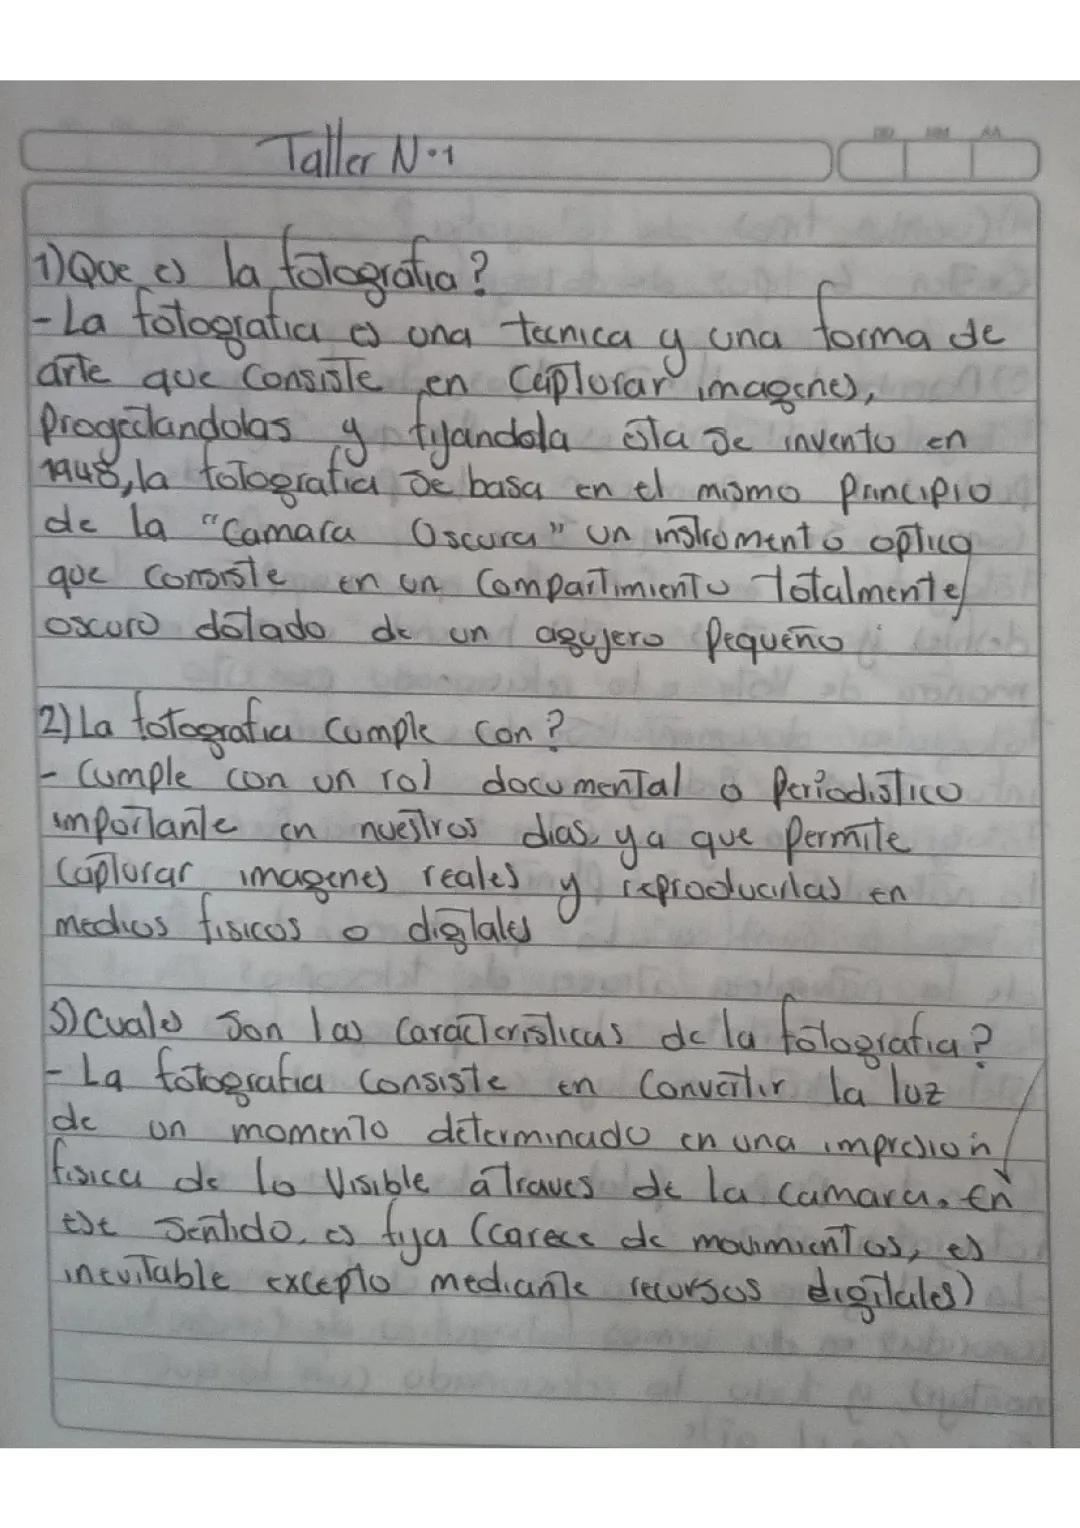 Taller N•1
DD MM AA
1) Que es la fotografia?
- La fotografia es una tecnica y una forma de
arte que consiste en capturar imagenes,
Progectandolas y fijandola esta se invento en
1948, la fotografia se basa en el mismo Principio
de la "Camara Oscura" un instromento optico
que consiste en un compartimiento totalmente
oscuro dotado de un agujero Pequeño
2) La fotografia cumple con?
- Cumple con un rol documental o Periodistico
importante en nuestros dias, ya que Permite
capturar imagenes reales y reproducirlas en
medios fisicos o digitales
3) Cuales son las caracteristicas de la fotografia?
- La fotografia consiste en convertir la luz
de un momento determinado en una impresion
fisica de lo visible atraves de la camara. En
ese sentido, es fija (carece de movimientos, es
inevitable excepto mediante recursos digitales)